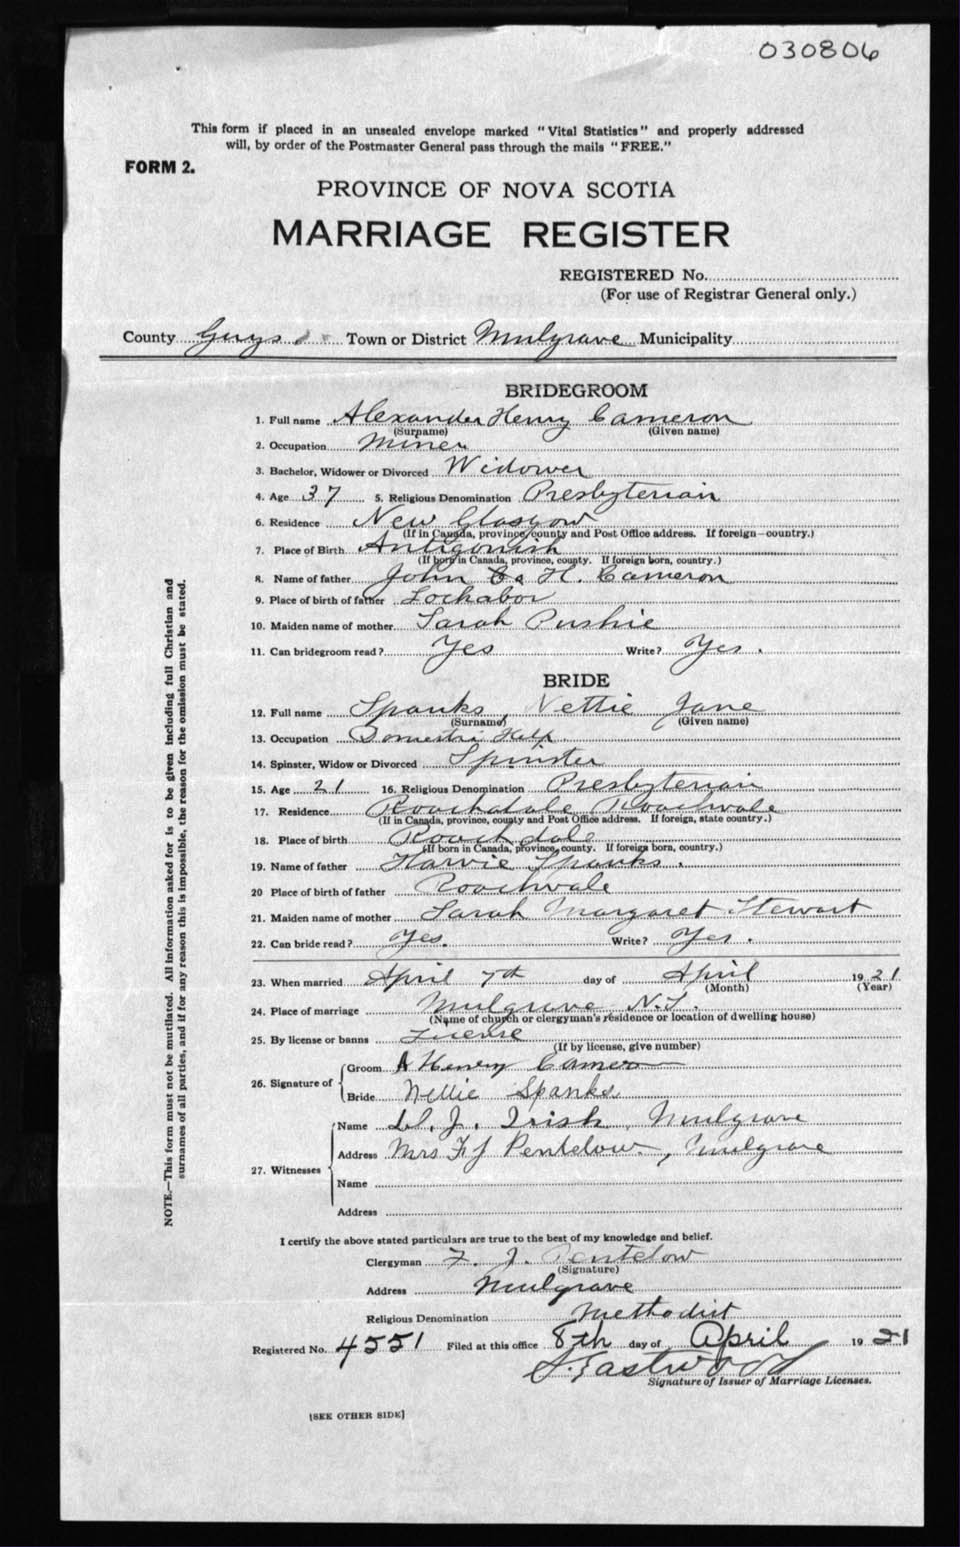 030806
This form if placed in an unsealed envelope marked "Vital Statistics" and properly addressed
will, by order of the Postmaster General pass through the mails "FREE."
FORM 2.
PROVINCE OF NOVA SCOTIA
MARRIAGE REGISTER
REGISTERED No.
(For use of Registrar General only.)
County Guys Town or District Mulgrave Municipality
BRIDEGROOM
1. Full name Alexander Henry Cameron
(Surname) (Given name)
2. Occupation Miner
3. Bachelor, Widower or Divorced Widower
4. Age 37 5. Religious Denomination Presbyterian
6. Residence New Glasgow
(If in Canada, province, county and Post Office address. If foreign—country.)
7. Place of Birth Antigonish
(If born in Canada, province, county. If foreign born, country.)
8. Name of father John H. Cameron
9. Place of birth of father Lochabor
10. Maiden name of mother Sarah Pushie
11. Can bridegroom read? Yes Write? Yes.
BRIDE
12. Full name Spanks, Nettie Jane
(Surname) (Given name)
13. Occupation Domestic Help
14. Spinster, Widow or Divorced Spinster
15. Age 21 16. Religious Denomination Presbyterian
17. Residence Roachdale Roachvale
(If in Canada, province, county and Post Office address. If foreign, state country.)
18. Place of birth Roachdale
(If born in Canada, province, county. If foreign born, country.)
19. Name of father Harvie Spanks.
20 Place of birth of father Roachvale
21. Maiden name of mother Sarah Margaret Stewart
22. Can bride read? Yes. Write? Yes.
23. When married April 7th day of April 1921
(Month) (Year)
24. Place of marriage Mulgrave N.S.
(Name of church or clergyman's residence or location of dwelling house)
25. By license or banns License
(If by license, give number)
26. Signature of Groom A Henry Cameron
Bride Nellie Spanks
27. Witnesses Name J. Irish, Mulgrave
Address Mrs F J Pentelow, Mulgrave
Name
Address
I certify the above stated particulars are true to the best of my knowledge and belief.
Clergyman F. J. Pentelow
(Signature)
Address Mulgrave
Religious Denomination Methodist
Registered No. 4551 Filed at this office 8th day of April 1921
S. Eastwood
Signature of Issuer of Marriage Licenses.
[SEE OTHER SIDE]
NOTE.—This form must not be mutilated. All information asked for is to be given including full Christian and
surnames of all parties, and if for any reason this is impossible, the reason for the omission must be stated.